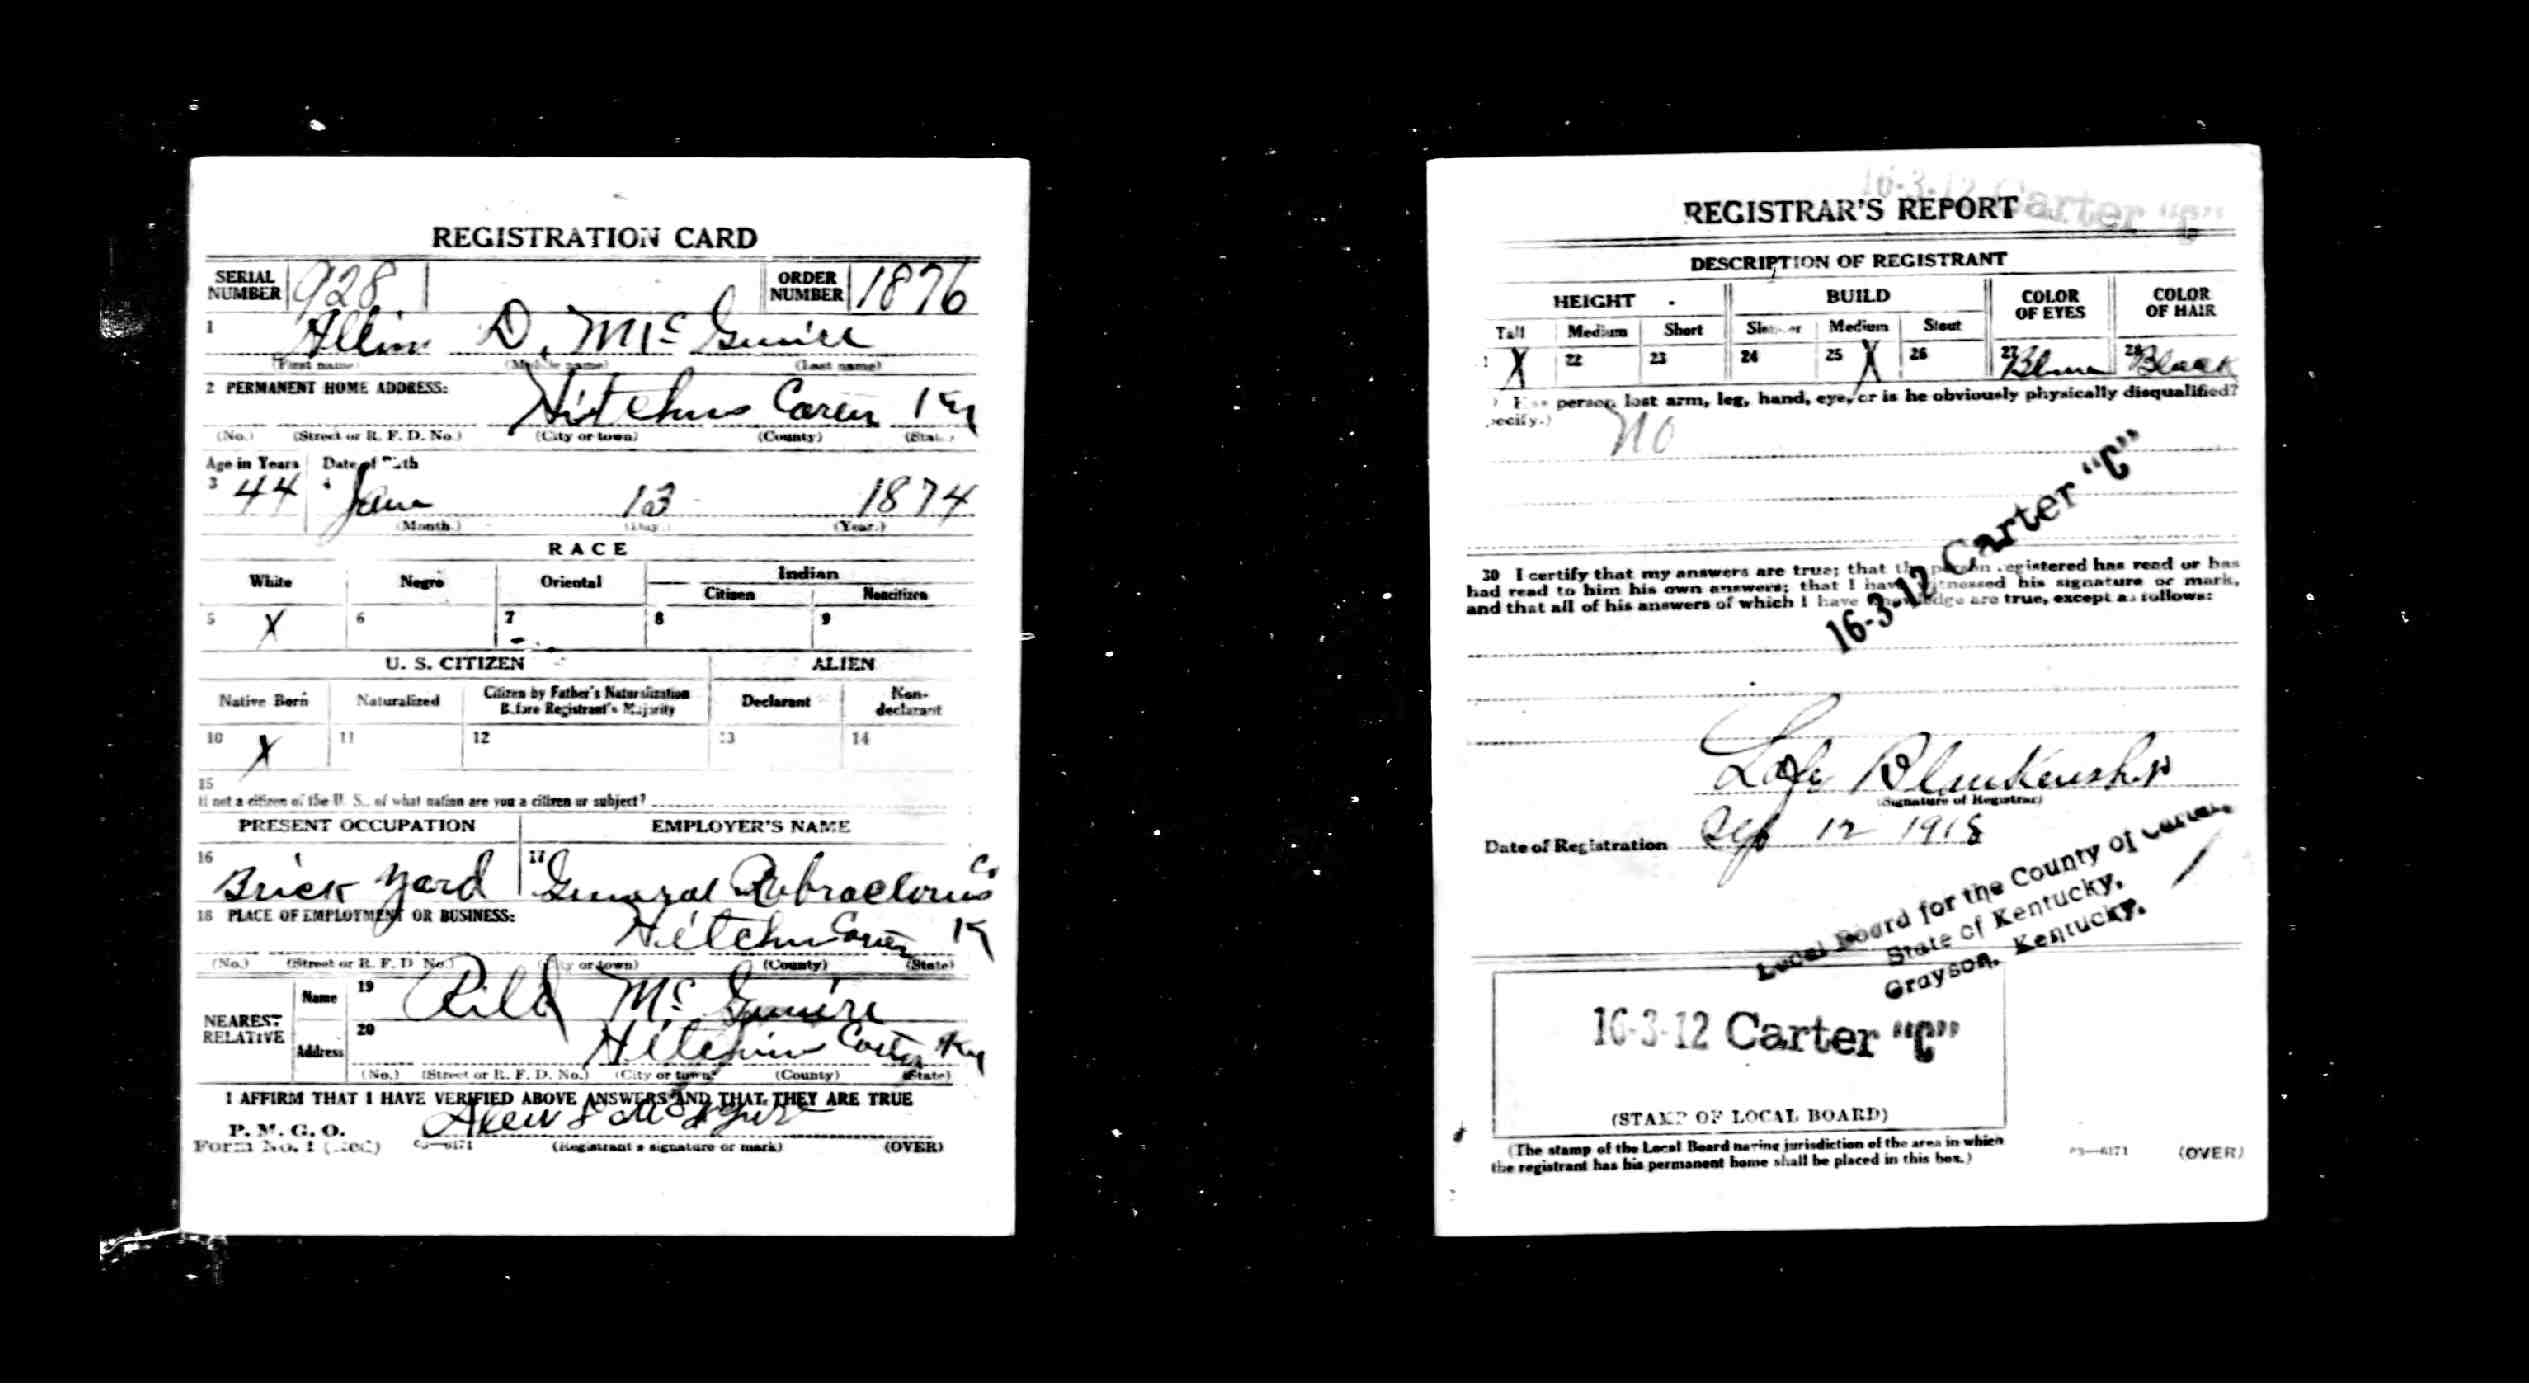 REGISTRATION CARD
SERIAL NUMBER 928 ORDER NUMBER 1876
1 Allin D. McGuire
(First name) (Middle name) (Last name)
2 PERMANENT HOME ADDRESS:
Hitchins Carter Ky
(No.) (Street or R. F. D. No.) (City or town) (County) (State)
Age in Years Date of Birth
3 44 4 Jan 13 1874
(Month.) (Day.) (Year.)
RACE
White Negro Oriental Indian
Citizen Noncitizen
5 X 6 7 8 9
U. S. CITIZEN ALIEN
Native Born Naturalized Citizen by Father's Naturalization Before Registrant's Majority Declarant Non-declarant
10 X 11 12 13 14
15
If not a citizen of the U. S., of what nation are you a citizen or subject?
PRESENT OCCUPATION EMPLOYER'S NAME
16 Brick Yard 17 General Co
18 PLACE OF EMPLOYMENT OR BUSINESS:
Carter K
(No.) (Street or R. F. D. No.) (City or town) (County) (State)
NEAREST RELATIVE
Name 19 McGuire
Address 20 Hitchins Carter Ky
(No.) (Street or R. F. D. No.) (City or town) (County) (State)
I AFFIRM THAT I HAVE VERIFIED ABOVE ANSWERS AND THAT THEY ARE TRUE
P. M. G. O.
Form No. 1 (Red) 03—6171 (Registrant's signature or mark) (OVER)
16-3-12 Carter "C"
REGISTRAR'S REPORT
DESCRIPTION OF REGISTRANT
HEIGHT BUILD COLOR OF EYES COLOR OF HAIR
Tall Medium Short Slender Medium Stout
X 22 23 24 25 X 26 27 Blue 28 Black
Has person lost arm, leg, hand, eye, or is he obviously physically disqualified?
(Specify.) No
16-3-12 Carter "C"
30 I certify that my answers are true; that the person registered has read or has
had read to him his own answers; that I have witnessed his signature or mark,
and that all of his answers of which I have knowledge are true, except as follows:
Blankenship
(Signature of Registrar)
Date of Registration Sep 12 1918
Local Board for the County of Carter,
State of Kentucky,
Grayson, Kentucky.
16-3-12 Carter "C"
(STAMP OF LOCAL BOARD)
(The stamp of the Local Board having jurisdiction of the area in which
the registrant has his permanent home shall be placed in this box.)
03—6171 (OVER)